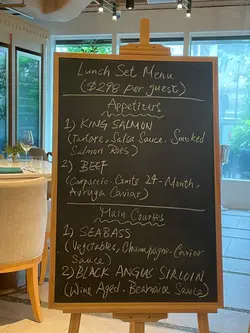 Lunch Set Menu
($298 per guest)
Appetizers
1) KING SALMON
(Tartare, Salsa Sauce, Smoked
Salmon Roes)
2) BEEF
(Carpaccio, Comte 24-Month,
Avruga Caviar)
Main Courses
1) SEABASS
(Vegetables, Champagne-Caviar
Sauce)
2) BLACK ANGUS SIRLOIN
(Wine Aged, Bearnaise Sauce)